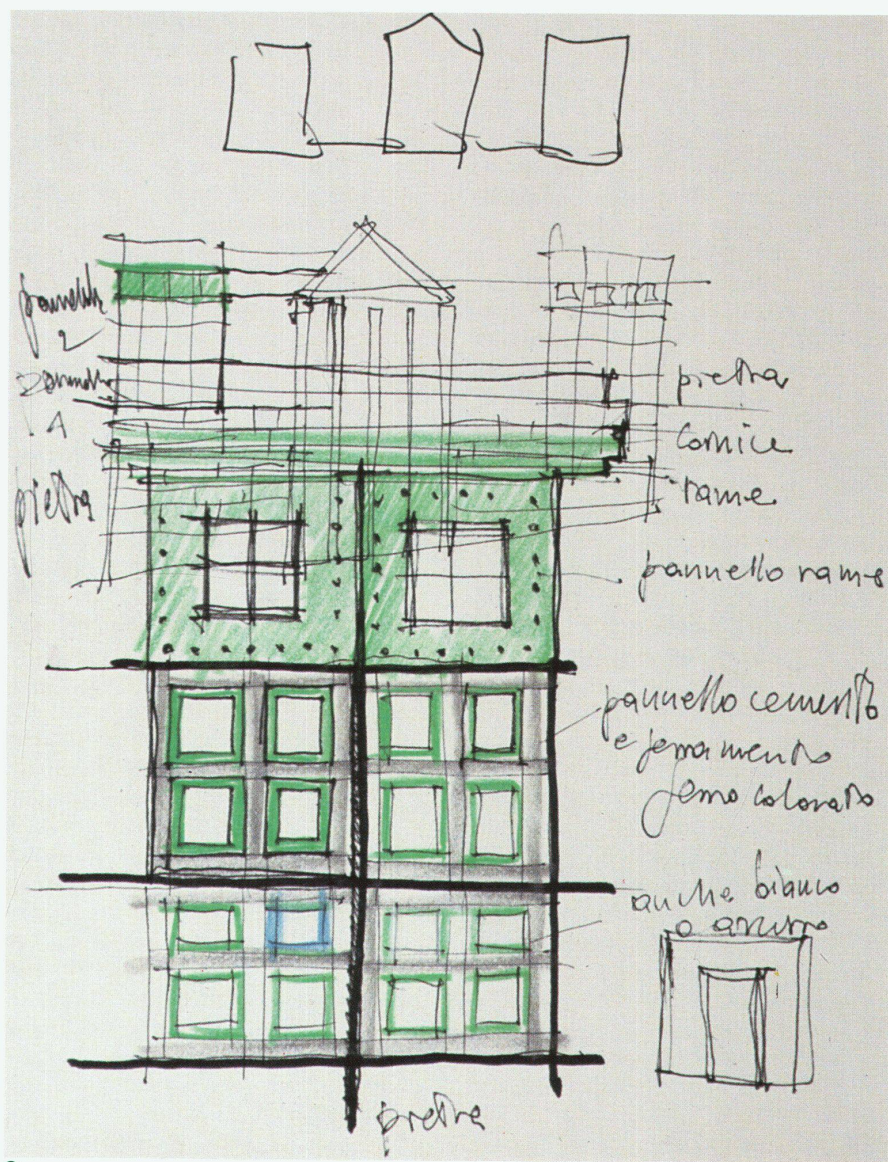 pannello
2
pannello
1
pietra
pietra
cornice
rame
pannello rame
pannello cemento
e serramento
ferro colorato
anche bianco
o azzurro
pietra